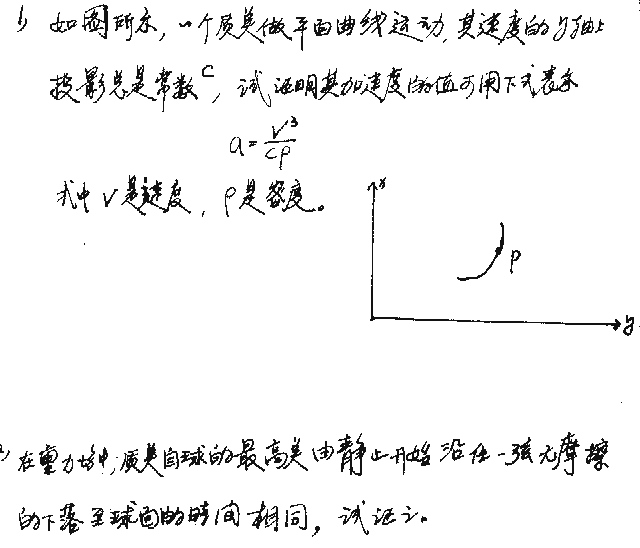 1) 如图所示，一个质点做平面曲线运动，其速度的y轴上
投影总是常数C，试证明其加速度的值可用下式表示
a=\frac{V^3}{Cρ}
式中V是速度，ρ是密度。
x
P
y
2) 在重力场中，质点自球的最高点由静止开始沿任一弦无摩擦
的下落至球面的时间相同，试证之。